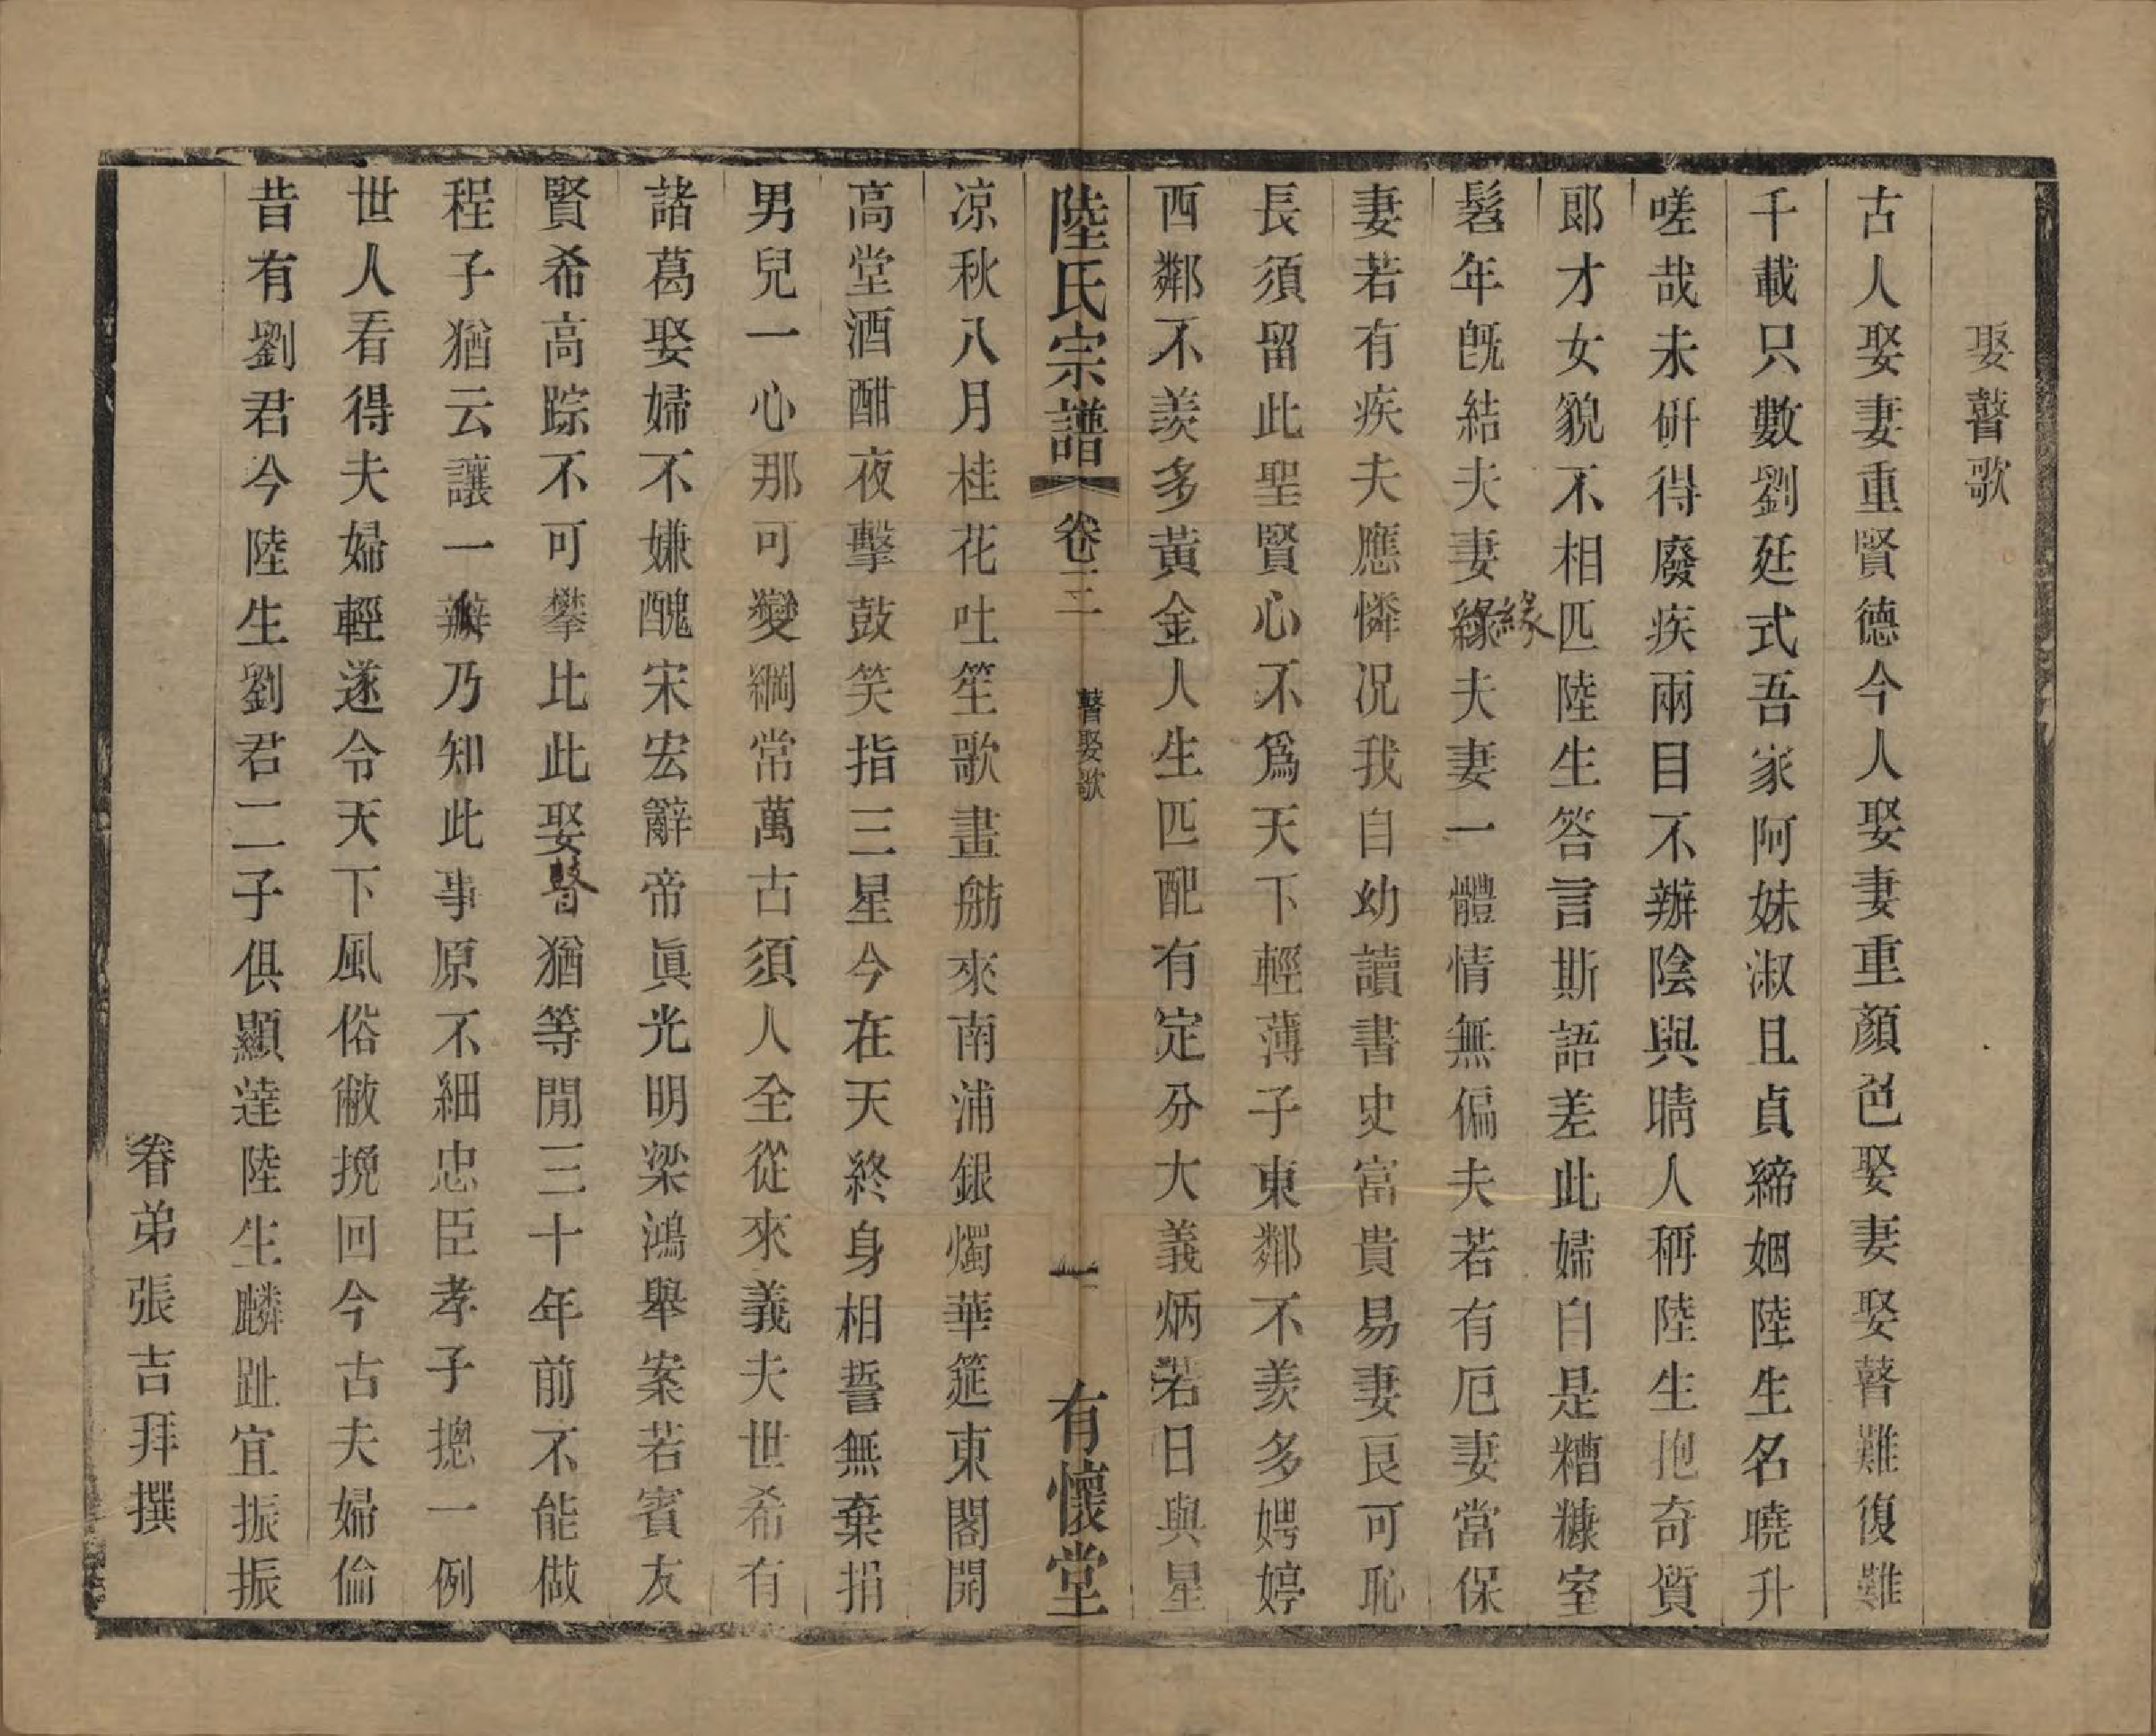 娶瞽歌
古人娶妻重賢德今人娶妻重顏色娶妻娶瞽難復難
千載只數劉廷式吾家阿妹淑且貞締姻陸生名曉升
嗟哉未硏得廢疾兩目不辦陰與晴人稱陸生抱奇質
郎才女貌不相匹陸生答言斯語差此婦自是糟糠室
髫年旣結夫妻緣夫妻一體情無偏夫若有厄妻當保
緣
妻若有疾夫應憐况我自幼讀書史富貴易妻良可恥
長須留此聖賢心不爲天下輕薄子東鄰不羨多娉婷
西鄰不羨多黃金人生匹配有定分大義炳若日與星
陸氏宗譜 卷二 瞽娶歌 一 有懷堂
凉秋八月桂花吐笙歌畫舫來南浦銀燭華筵東閣開
高堂酒酣夜擊鼓笑指三星今在天終身相誓無棄捐
男兒一心那可變綱常萬古須人全從來義夫世希有
諸葛娶婦不嫌醜宋宏辭帝眞光明梁鴻舉案若賓友
賢希高踪不可攀比此娶瞽猶等閒三十年前不能做
程子猶云讓一辦乃知此事原不細忠臣孝子摠一例
世人看得夫婦輕遂令天下風俗敝挽回今古夫婦倫
昔有劉君今陸生劉君二子俱顯達陸生麟趾宜振振
眷弟張吉拜撰